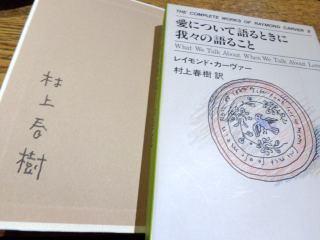 村上春樹
THE COMPLETE WORKS OF RAYMOND CARVER 2
愛について語るときに
我々の語ること
What We Talk About When We Talk About Love
レイモンド・カーヴァー
村上春樹 訳